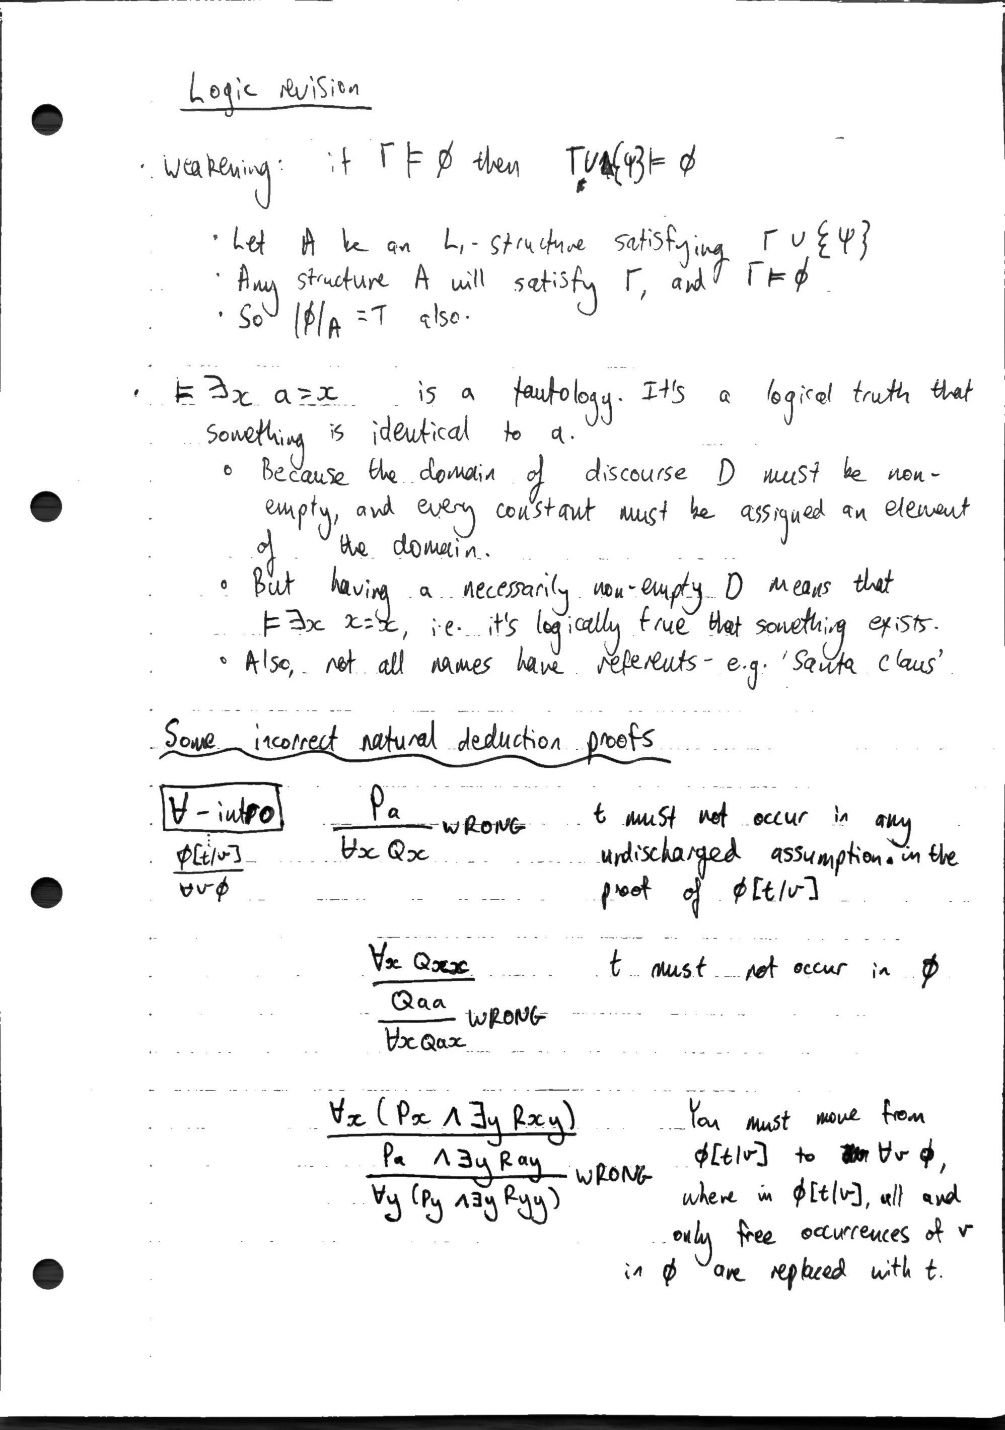 Logic revision
· Weakening: if Γ ⊨ ϕ then Γ∪{ψ} ⊨ ϕ
· Let A be an L₁-structure satisfying Γ ∪ {ψ}
· Any structure A will satisfy Γ, and Γ ⊨ ϕ
· So |ϕ|_A = T also.
· ⊨ ∃x a=x is a tautology. It's a logical truth that
something is identical to a.
∘ Because the domain of discourse D must be non-
empty, and every constant must be assigned an element
of the domain.
∘ But having a necessarily non-empty D means that
⊨ ∃x x=x, i.e. it's logically true that something exists.
∘ Also, not all names have referents - e.g. 'Santa claus'
Some incorrect natural deduction proofs
∀-intro
⋮
ϕ[t/v]
∀v ϕ
Pa
∀x Qx WRONG
t must not occur in any
undischarged assumption in the
proof of ϕ[t/v]
∀x Qxx
Qaa
∀x Qax WRONG
t must not occur in ϕ
∀x (Px ∧ ∃y Rxy)
Pa ∧ ∃y Ray
∀y (Py ∧ ∃y Ryy) WRONG
You must move from
ϕ[t/v] to ∀v ϕ,
where in ϕ[t/v], all and
only free occurrences of v
in ϕ are replaced with t.